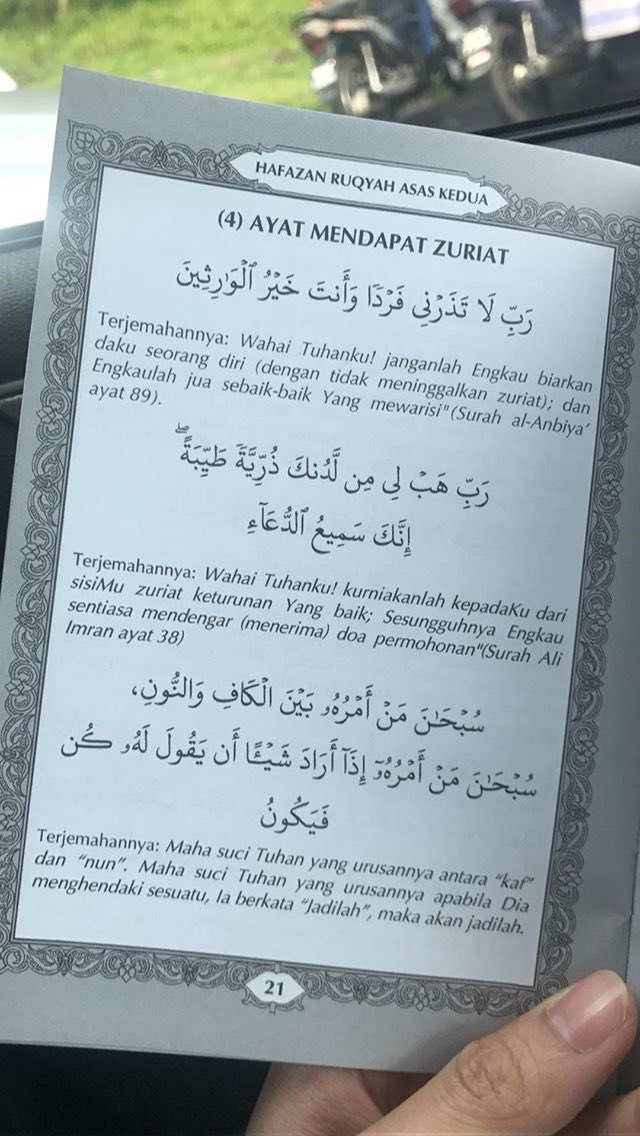 HAFAZAN RUQYAH ASAS KEDUA
(4) AYAT MENDAPAT ZURIAT
رَبِّ لَا تَذَرۡنِي فَرۡدٗا وَأَنتَ خَيۡرُ ٱلۡوَٰرِثِينَ
Terjemahannya: Wahai Tuhanku! janganlah Engkau biarkan
daku seorang diri (dengan tidak meninggalkan zuriat); dan
Engkaulah jua sebaik-baik Yang mewarisi"(Surah al-Anbiya’
ayat 89).
رَبِّ هَبۡ لِي مِن لَّدُنكَ ذُرِّيَّةٗ طَيِّبَةًۖ
إِنَّكَ سَمِيعُ ٱلدُّعَآءِ
Terjemahannya: Wahai Tuhanku! kurniakanlah kepadaKu dari
sisiMu zuriat keturunan Yang baik; Sesungguhnya Engkau
sentiasa mendengar (menerima) doa permohonan"(Surah Ali
Imran ayat 38)
سُبۡحَٰنَ مَنۡ أَمۡرُهُۥ بَيۡنَ ٱلۡكَافِ وَالنُّونِ،
سُبۡحَٰنَ مَنۡ أَمۡرُهُۥٓ إِذَآ أَرَادَ شَيۡـًٔا أَن يَقُولَ لَهُۥ كُن
فَيَكُونُ
Terjemahannya: Maha suci Tuhan yang urusannya antara “kaf”
dan “nun”. Maha suci Tuhan yang urusannya apabila Dia
menghendaki sesuatu, Ia berkata “Jadilah”, maka akan jadilah.
21